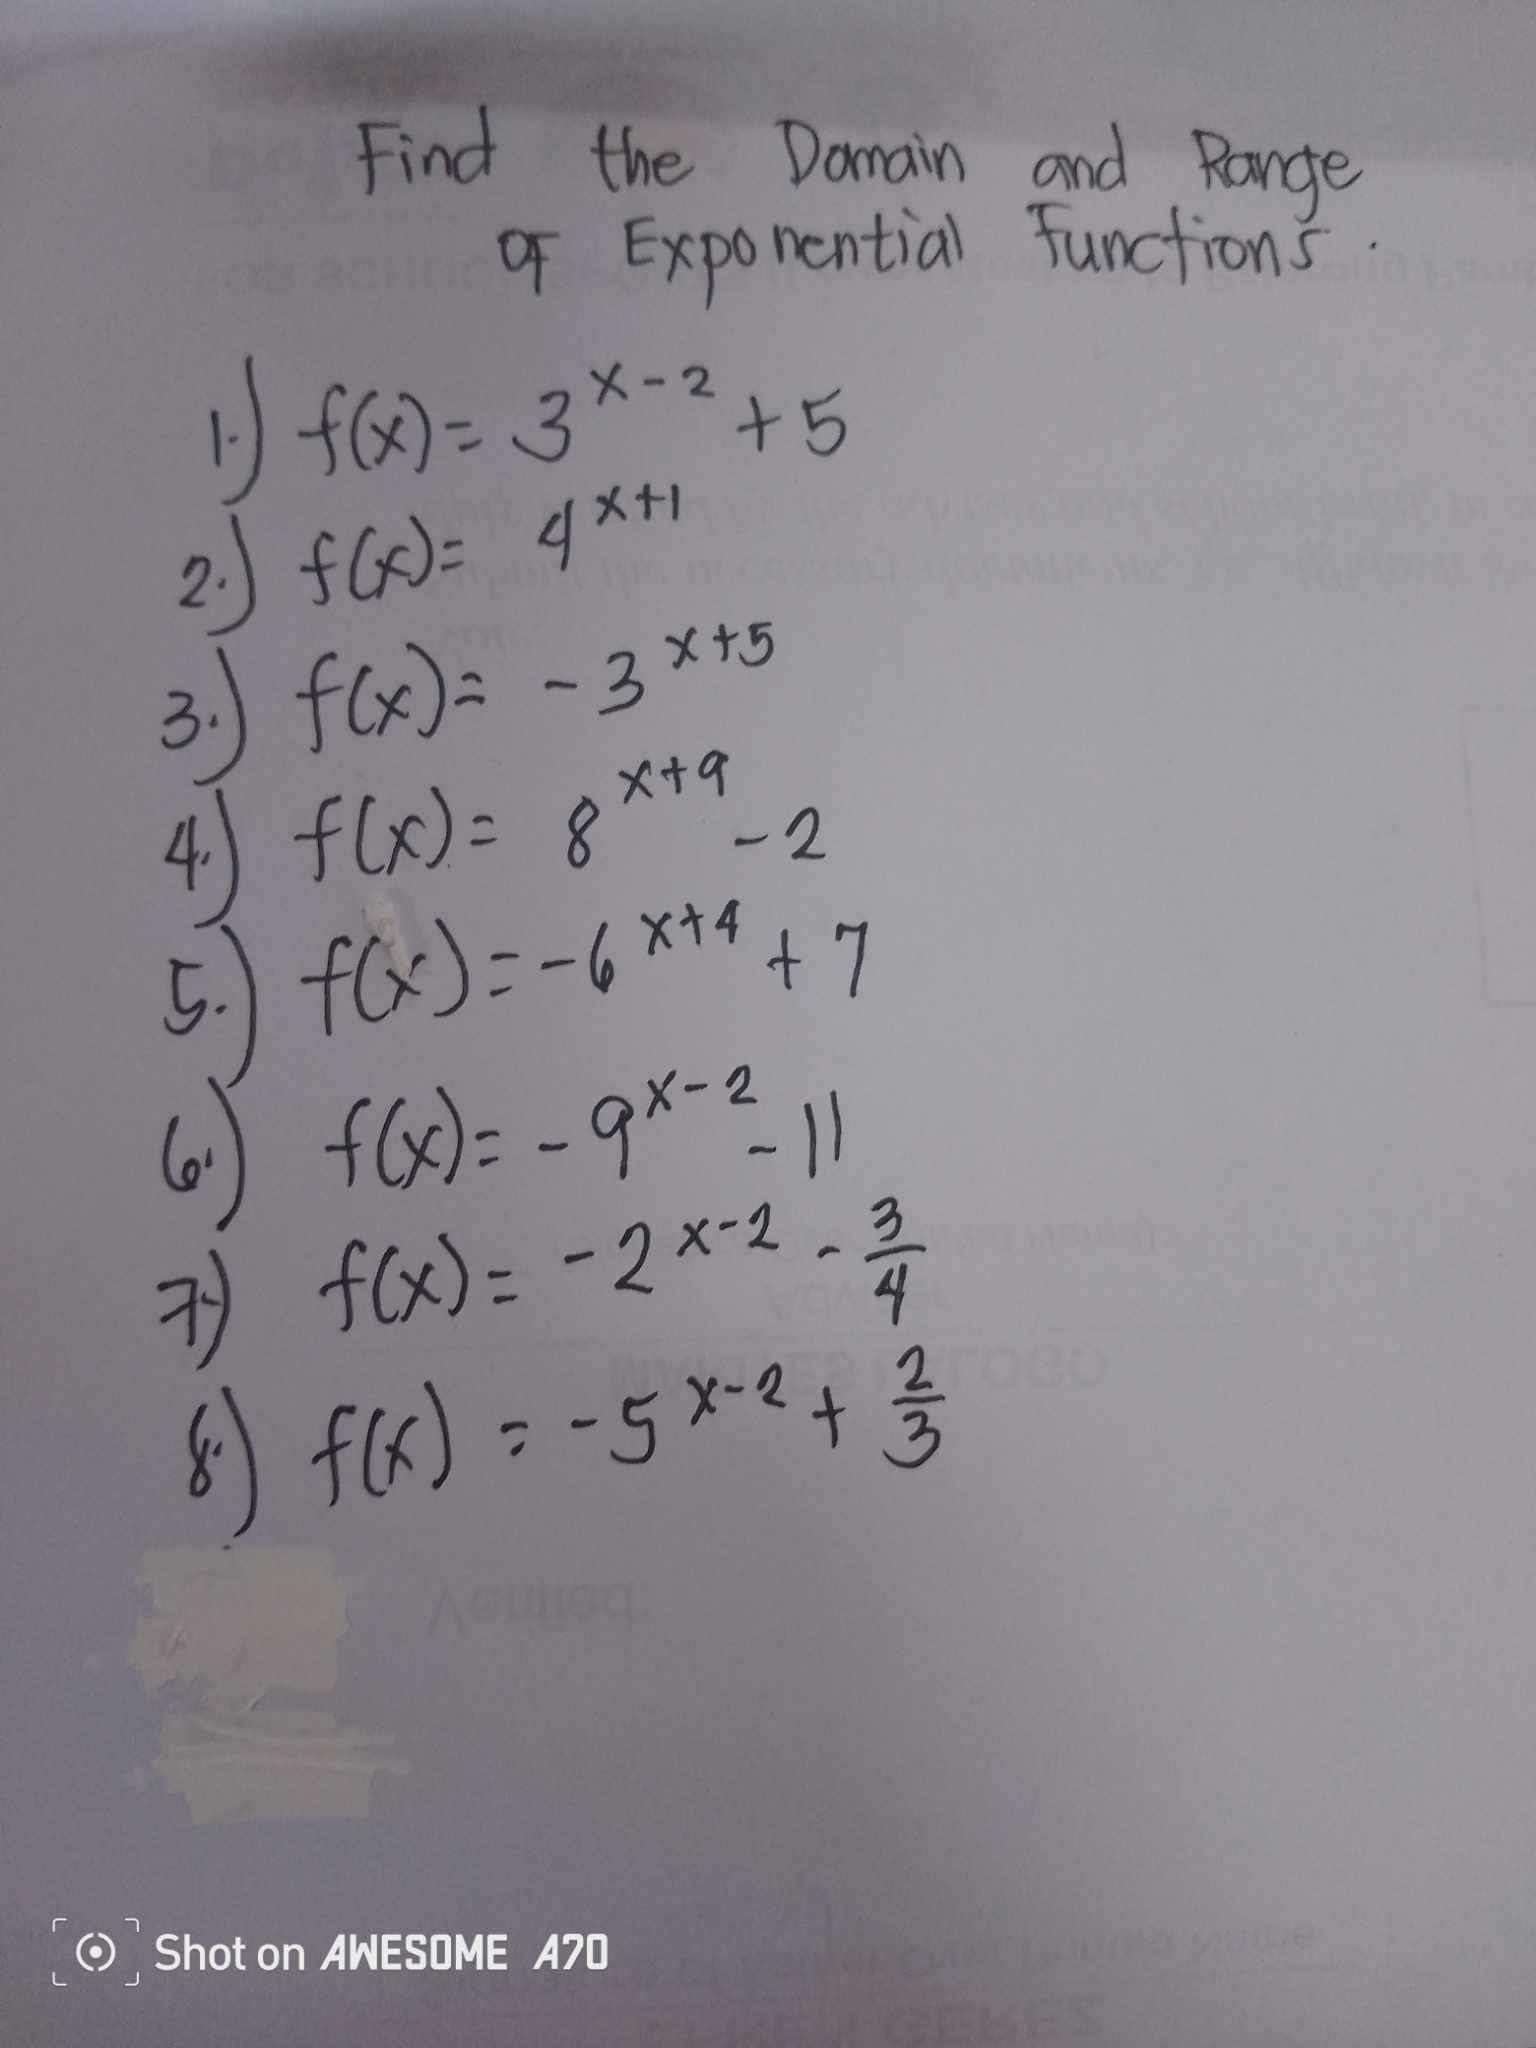 Find the Domain and Range
of Exponential Functions.
1.) f(x) = 3^{x-2} + 5
2.) f(x) = 4^{x+1}
3.) f(x) = -3^{x+5}
4.) f(x) = 8^{x+9} - 2
5.) f(x) = -6^{x+4} + 7
6.) f(x) = -9^{x-2} - 11
7.) f(x) = -2^{x-2} - 3/4
8.) f(x) = -5^{x-2} + 2/3
Verified:
Shot on AWESOME A70